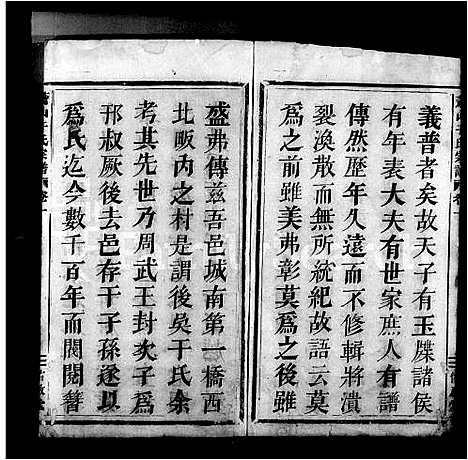 義普者矣故天子有玉牒諸侯
有年表大夫有世家庶人有譜
傳然歷年久遠而不修輯將潰
裂渙散而無所統紀故語云莫
為之前雖美弗彰莫為之後雖
盛弗傳茲吾邑城南第一橋西
北畈內之村是謂後吳于氏余
考其先世乃周武王封次子為
邗叔厥後去邑存干子孫遂以
為氏迄今數千百年而閥閱簪